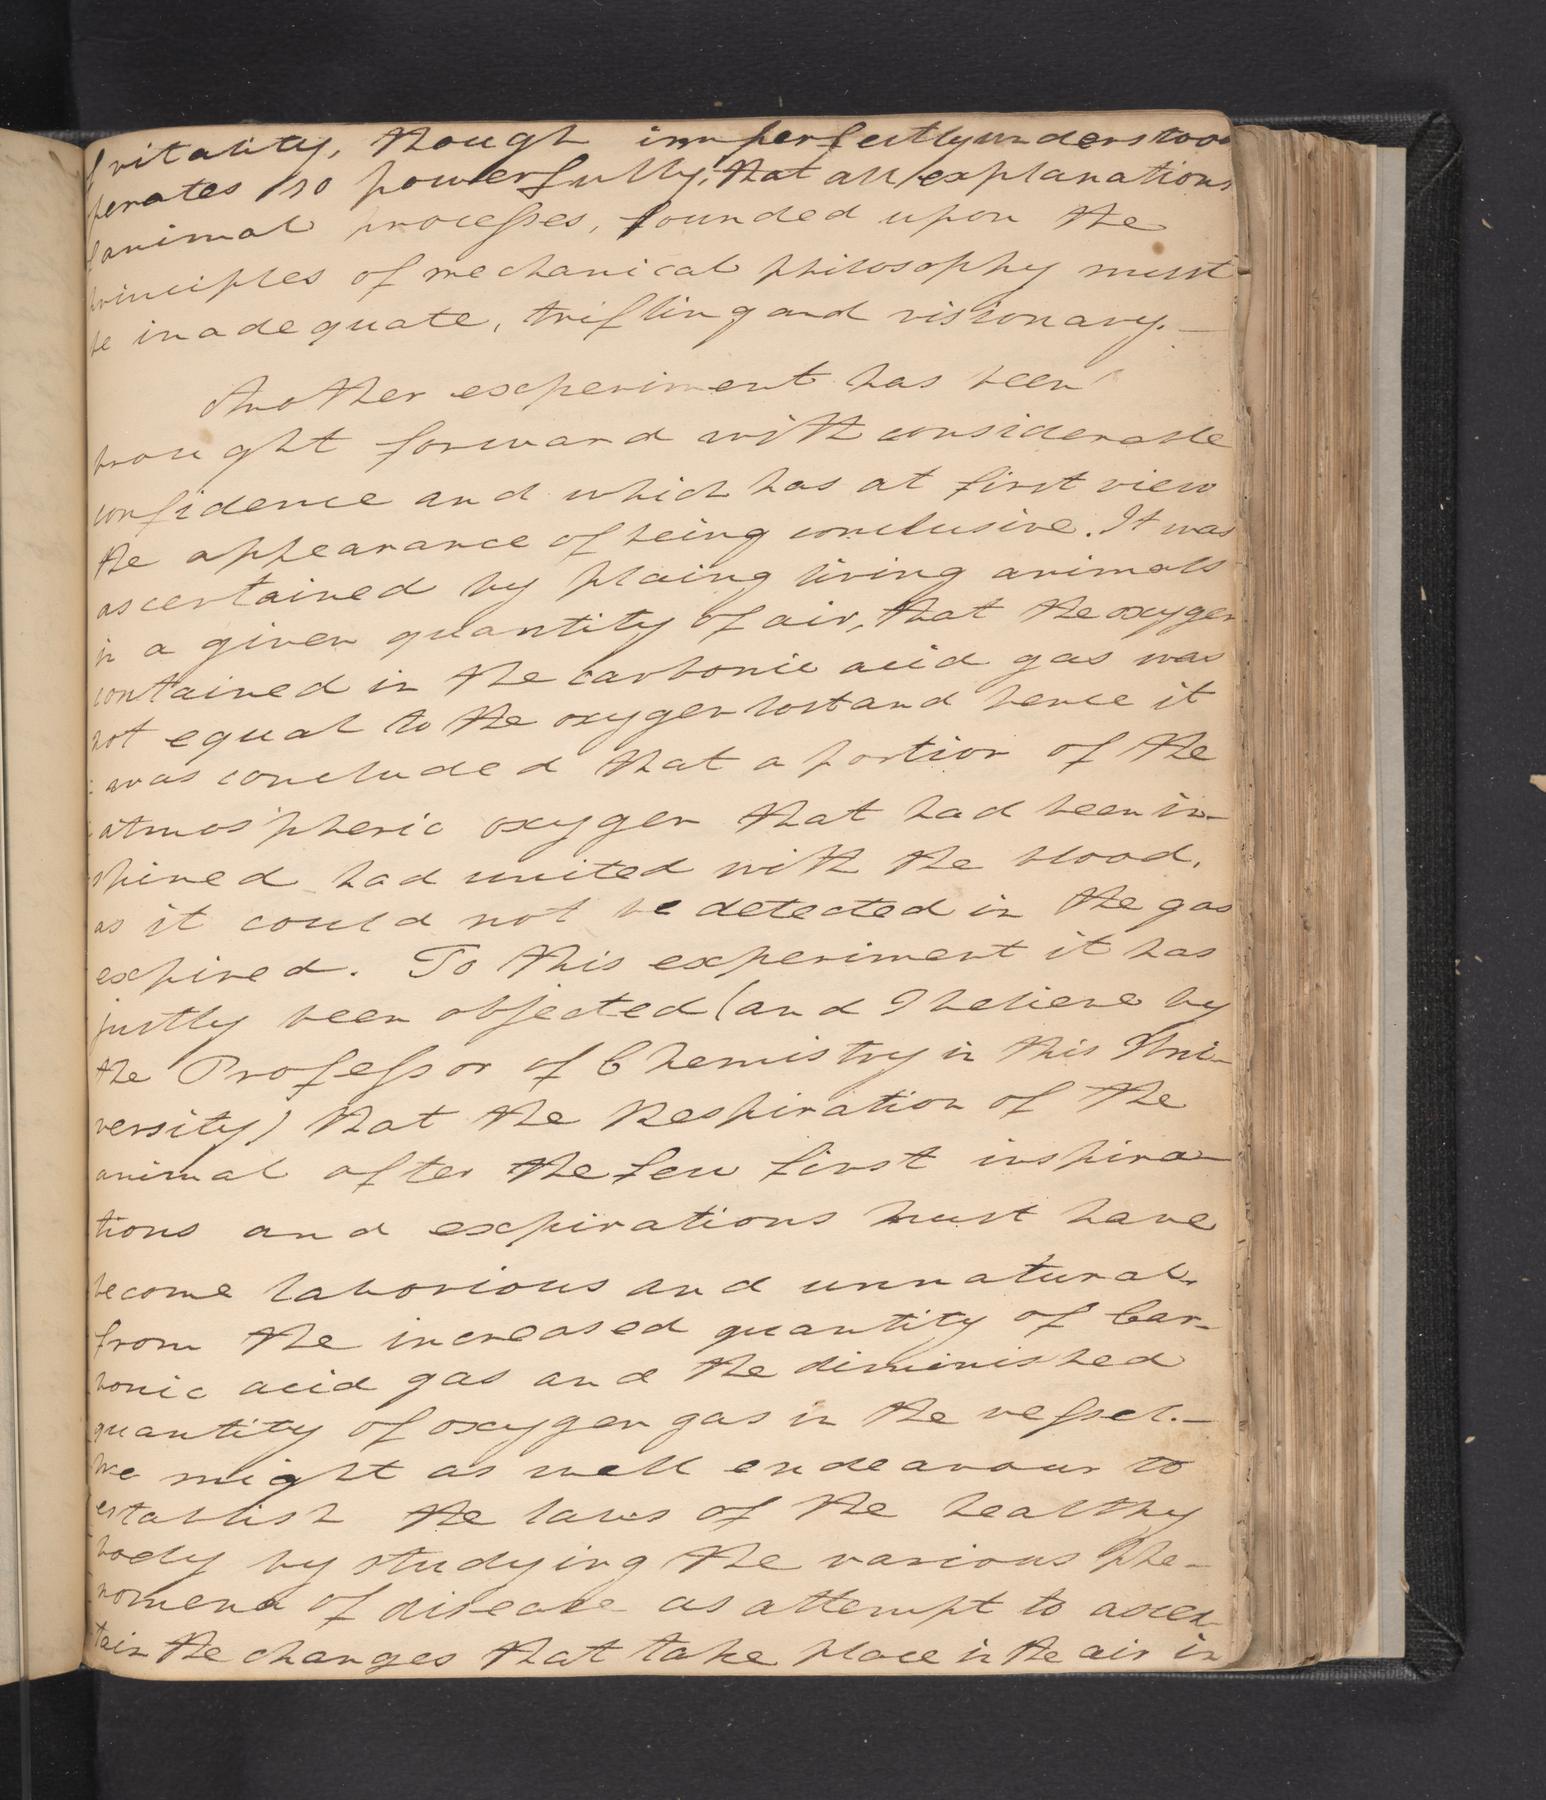 f vitality, though imperfectly understood
perates so powerfully, that all explanations
f animal processes, founded upon the
principles of mechanical philosophy must
be inadequate, trifling and visionary.—
Another experiment has been
brought forward with considerable
confidence and which has at first view
the appearance of being conclusive. It was
ascertained by plaing living animals
in a given quantity of air, that the oxygen
contained in the carbonic acid gas was
not equal to the oxygen lost and hence it
was concluded that a portion of the
atmospheric oxygen that had been in-
spired had united with the blood,
as it could not be detected in the gas
expired. To this experiment it has
justly been objected (and I believe by
the Professor of Chemistry in this Uni-
versity) that the Respiration of the
animal after the few first inspira-
tions and expirations must have
become laborious and unnatural,
from the increased quantity of Car-
bonic acid gas and the diminished
quantity of oxygen gas in the vessel.—
We might as well endeavour to
establish the laws of the healthy
body by studying the various Phe-
nomena of disease as attempt to ascer-
tain the changes that take place in the air in